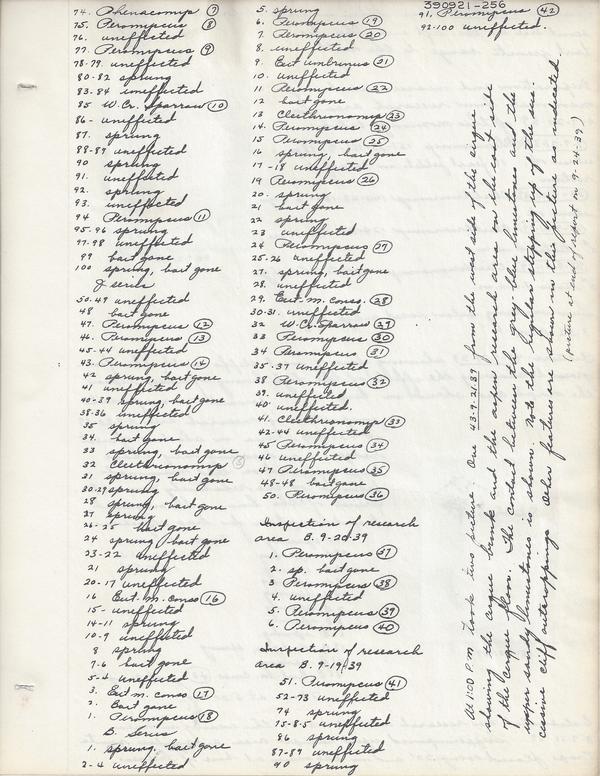 390921-256
74. Phenacomys 7
75. Peromyscus 8
76. uneffected
77. Peromyscus 9
78-79. uneffected
80-82 sprung
83-84 uneffected
85 W. Cr. Sparrow 10
86- uneffected
87. sprung
88-89 uneffected
90 sprung
91. uneffected
92. sprung
93. uneffected
94 Peromyscus 11
95-96 sprung
97-98 uneffected
99 bait gone
100 sprung, bait gone
J series
50-49 uneffected
48 bait gone
47. Peromyscus 12
46. Peromyscus 13
45-44 uneffected
43. Peromyscus 14
42 sprung, bait gone
41 uneffected
40-39 sprung, bait gone
38-36 uneffected
35 sprung
34. bait gone
33 sprung, bait gone
32 Clethrionomys
31 sprung, bait gone
30-29 sprung
28 sprung, bait gone
27 sprung
26-25 bait gone
24 sprung bait gone
23-22 uneffected
21 sprung
20-17 uneffected
16 Eut. m. conso 16
15- uneffected
14-11 sprung
10-9 uneffected
8 sprung
7-6 bait gone
5-4 uneffected
3. Eut m. conso 17
2. Bait gone
1. Peromyscus 18
B. Series
1. sprung, bait gone
2-4 uneffected
5. sprung
6. Peromyscus 19
7. Peromyscus 20
8. uneffected
9. Eut umbrinus 21
10. uneffected
11 Peromyscus 22
12 bait gone
13 Clethrionomys 23
14. Peromyscus 24
15 Peromyscus 25
16 sprung, bait gone
17-18 uneffected
19 Peromyscus 26
20. sprung
21 bait gone
22 sprung
23 uneffected
24 Peromyscus 27
25-26 uneffected
27. sprung, bait gone
28. uneffected
29. Eut. m. conso. 28
30-31. uneffected
32 W. Cr. Sparrow 29
33 Peromyscus 30
34 Peromyscus 31
35-37 uneffected
38 Peromyscus 32
39. uneffected
40 uneffected.
41. Clethrionomys 33
42-44 uneffected
45 Peromyscus 34
46 uneffected
47 Peromyscus 35
48-48 bait gone
50. Peromyscus 36
Inspection of research
area B. 9-20-39
1. Peromyscus 37
2. sp. bait gone
3 Peromyscus 38
4. uneffected
5. Peromyscus 39
6. Peromyscus 40
Inspection of research
area B. 9-19-39
51. Peromyscus 41
52-73 uneffected
74 sprung
75-85 uneffected
86 sprung
87-89 uneffected
90 sprung
91. Peromyscus 42
92-100 uneffected.
At 1:00 P.M. took two picture. One 43-9-21-39 from the west side of the cirque
showing the cirque bank and the aspen research area on the east side
of the cirque floor. The contact between the grey-blue limestones and the
upper sandy limestones is shown. Note the irregular stepping up of the suc
cessive cliff outcroppings other features are shown in this picture as indicated.
(picture at end of report on 9-24-39)